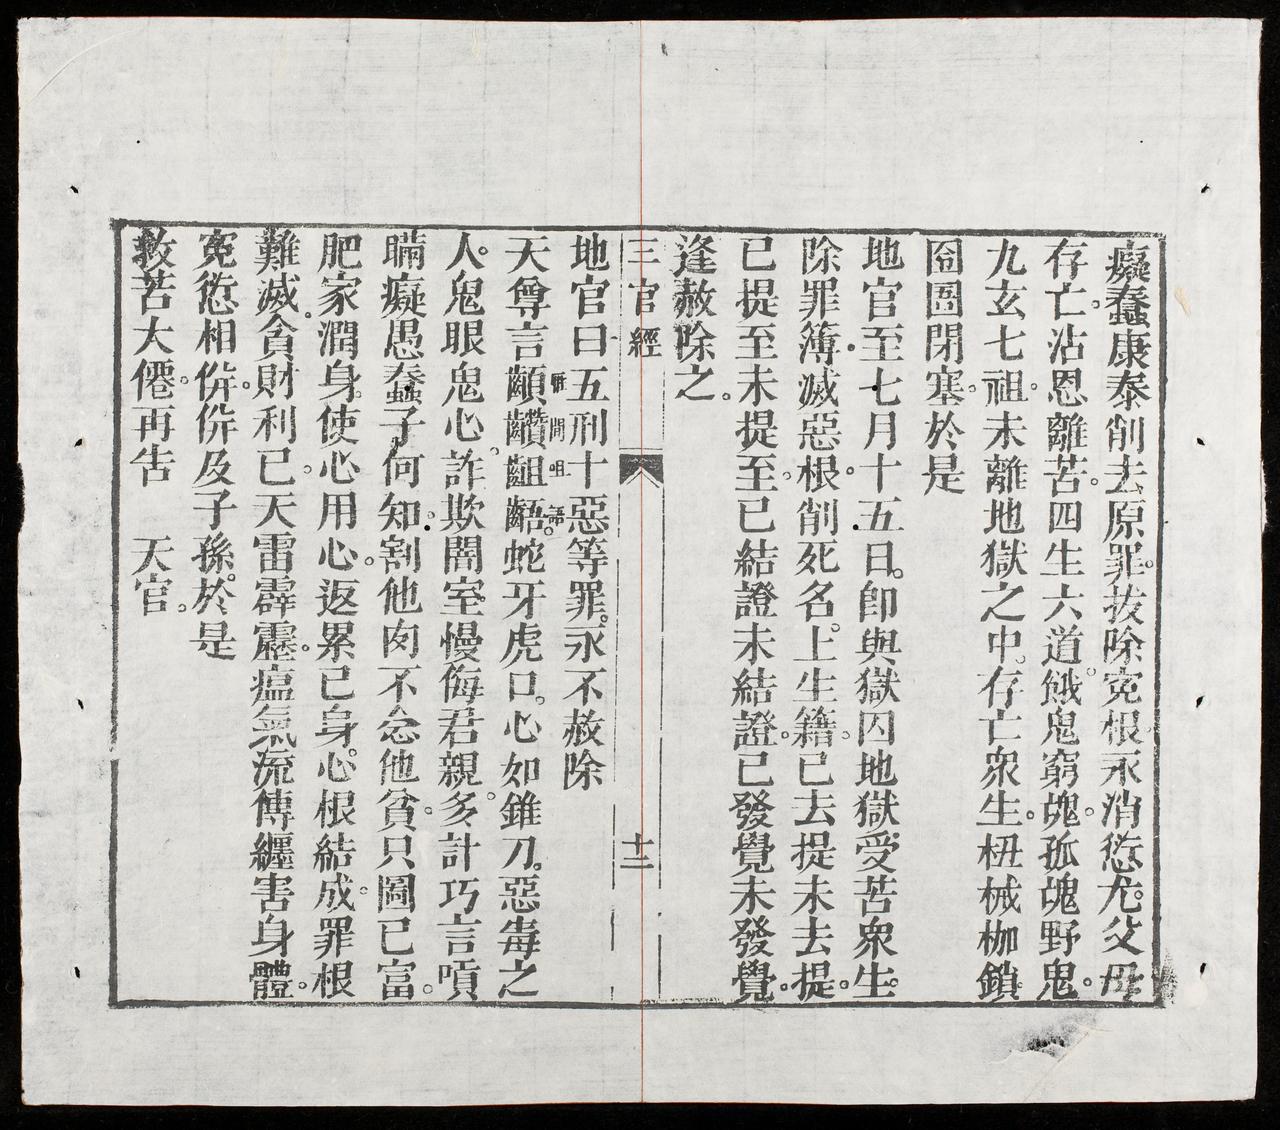 癡蠢康泰削去原罪。拔除寃根永消愆尤。父母
存亡。沾恩離苦。四生六道。餓鬼窮魂。孤魂野鬼。
九玄七祖。未離地獄之中。存亡衆生。杻械枷鎖
囹圄閉塞。於是
地官至七月十五日。卽與獄囚地獄受苦衆生。
除罪簿滅惡根。削死名。上生籍。已去提未去提。
已提至未提至。已結證未結證。已發覺未發覺。
逢赦除之。
三官經 十二
地官曰五刑十惡等罪。永不赦除
天尊言齻齾齟齬。蛇牙虎口。心如錐刀。惡毒之
人。鬼眼鬼心。詐欺闇室慢侮君親。多計巧言嗊
𥈭癡愚蠢子何知。割他肉不念他貧。只圖已富。
肥家潤身。使心用心。返累已身。心根結成。罪根
難滅。貪財利已。天雷霹靂。瘟氣流傳纏害身體。
寃愆相侔。侔及子孫。於是
救苦大僊。再吿 天官。